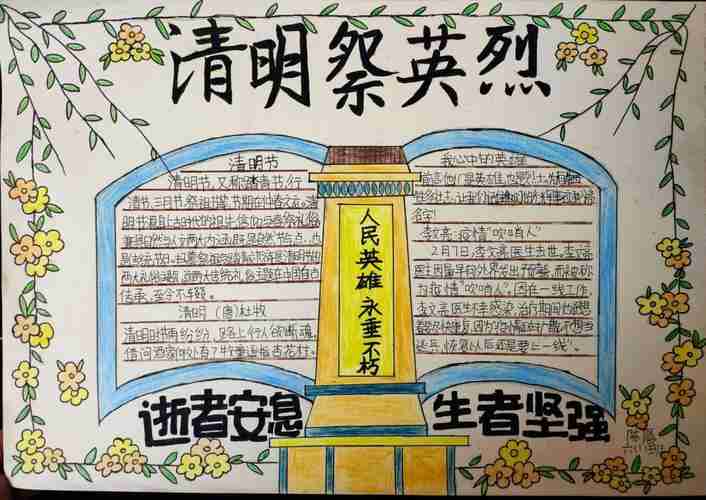 清明祭英烈
清明节
清明节，又称踏青节、行
清节、三月节、祭祖节等，节期在仲春之交。清
明节源自上古时代的祖先信仰与春祭礼俗，
兼具自然与人文两大内涵，既是自然节气点，也
是传统节日。扫墓祭祖与踏青郊游是清明节的
两大礼俗主题，这两大传统礼俗主题在中国自古
传承，至今不辍。
清明 (唐)杜牧
清明时节雨纷纷，路上行人欲断魂。
借问酒家何处有？牧童遥指杏花村。
人民英雄永垂不朽
我心中的英雄
名字！
李文亮：疫情“吹哨人”
2月7日，李文亮医生去世，李文亮
医生因最早向外界发出预警，而被称
为疫情“吹哨人”。因在一线工作，
李文亮医生不幸感染，治疗期间他还想
逃兵，恢复以后还是要上一线”。
逝者安息
生者坚强